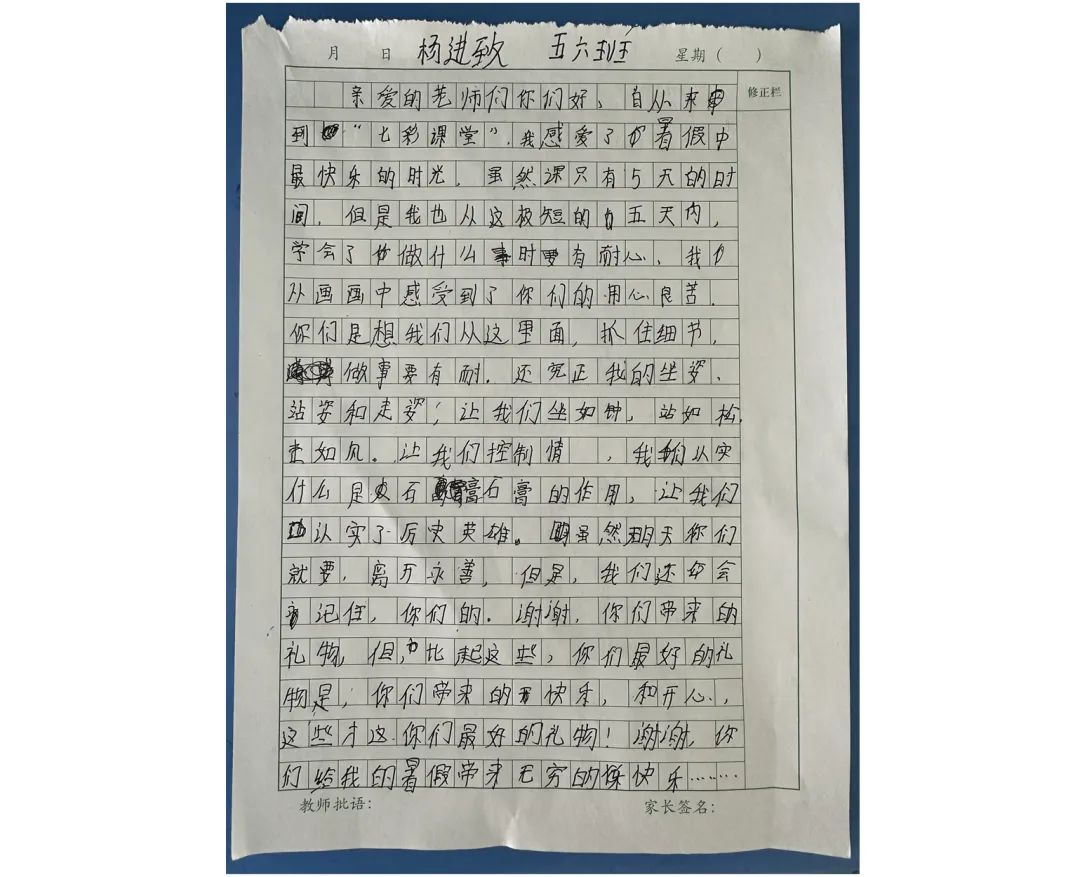 月 日 杨进致 五六班 星期（ ）
修正栏
亲爱的老师们你们好、自从来
到“七彩课堂”.我感爱了暑假中
最快乐的时光．虽然课只有5天的时
间．但是我也从这极短的五天内，
学会了做什么事时要有耐心、我
从画画中感受到了你们的用心良苦．
你们是想我们从这里面，抓住细节，
做事要有耐．还完正我的坐姿、
站姿和走姿；让我们坐如钟，站如松，
走如风。让我们控制情，我们认实
什么是石膏石膏的作用，让我们
认实了厉史英雄。虽然明天你们
就要，离开永善，但是，我们还会
记住，你们的．谢谢，你们带来的
礼物，但，比起这些，你们最好的礼
物是，你们带来的快乐，和开心，，
这些才这你们最好的礼物！谢谢，你
们给我的暑假带来无穷的快乐……
教师批语： 家长签名：